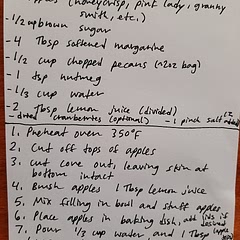 apples (honeycrisp, pink lady, granny
smith, etc.)
- 1/2 cup brown sugar
- 4 Tbsp softened margarine
- 1/2 cup chopped pecans (~2oz bag)
- 1 tsp nutmeg
- 1/3 cup water
- 2 Tbsp lemon juice (divided)
- dried cranberries (optional) - 1 pink salt
1. Preheat oven 350°F
2. Cut off tops of apples
3. Cut core out, leaving skin at
bottom intact
4. Brush apples 1 Tbsp lemon juice
5. Mix filling in bowl and stuff apples
6. Place apples in baking dish, add if
desired
7. Pour 1/3 cup water and 1 Tbsp